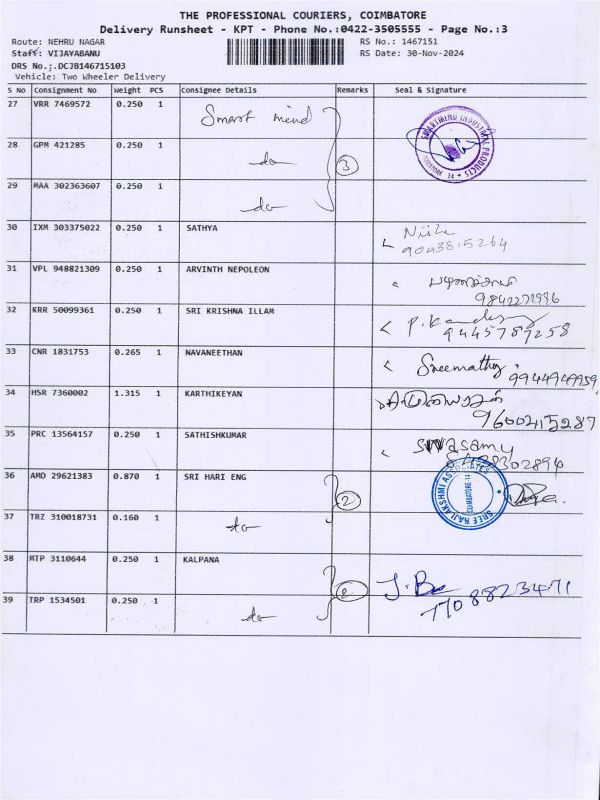 THE PROFESSIONAL COURIERS, COIMBATORE
Delivery Runsheet - KPT - Phone No.:0422-3505555 - Page No.:3
Route: NEHRU NAGAR RS No.: 1467151
Staff: VIJAYABANU RS Date: 30-Nov-2024
DRS No.:.DCJB146715103
Vehicle: Two Wheeler Delivery
S No Consignment No Weight PCS Consignee Details Remarks Seal & Signature
27 VRR 7469572 0.250 1 Smart mind
SMARTMIND INDUSTRIAL PRODUCTS
28 GPM 421285 0.250 1 do 3
29 MAA 302363607 0.250 1 do
30 IXM 303375022 0.250 1 SATHYA
31 VPL 948821309 0.250 1 ARVINTH NEPOLEON
32 KRR 50099361 0.250 1 SRI KRISHNA ILLAM
9445787258
33 CNR 1831753 0.265 1 NAVANEETHAN Sreemathy
34 HSR 7360002 1.315 1 KARTHIKEYAN
35 PRC 13564157 0.250 1 SATHISHKUMAR
36 AMD 29621383 0.870 1 SRI HARI ENG 2
SREE RAJLAKSHMI ASSOCIATES COIMBATORE-14
37 TRZ 310018731 0.160 1 do
38 MTP 3110644 0.250 1 KALPANA
39 TRP 1534501 0.250 1 do